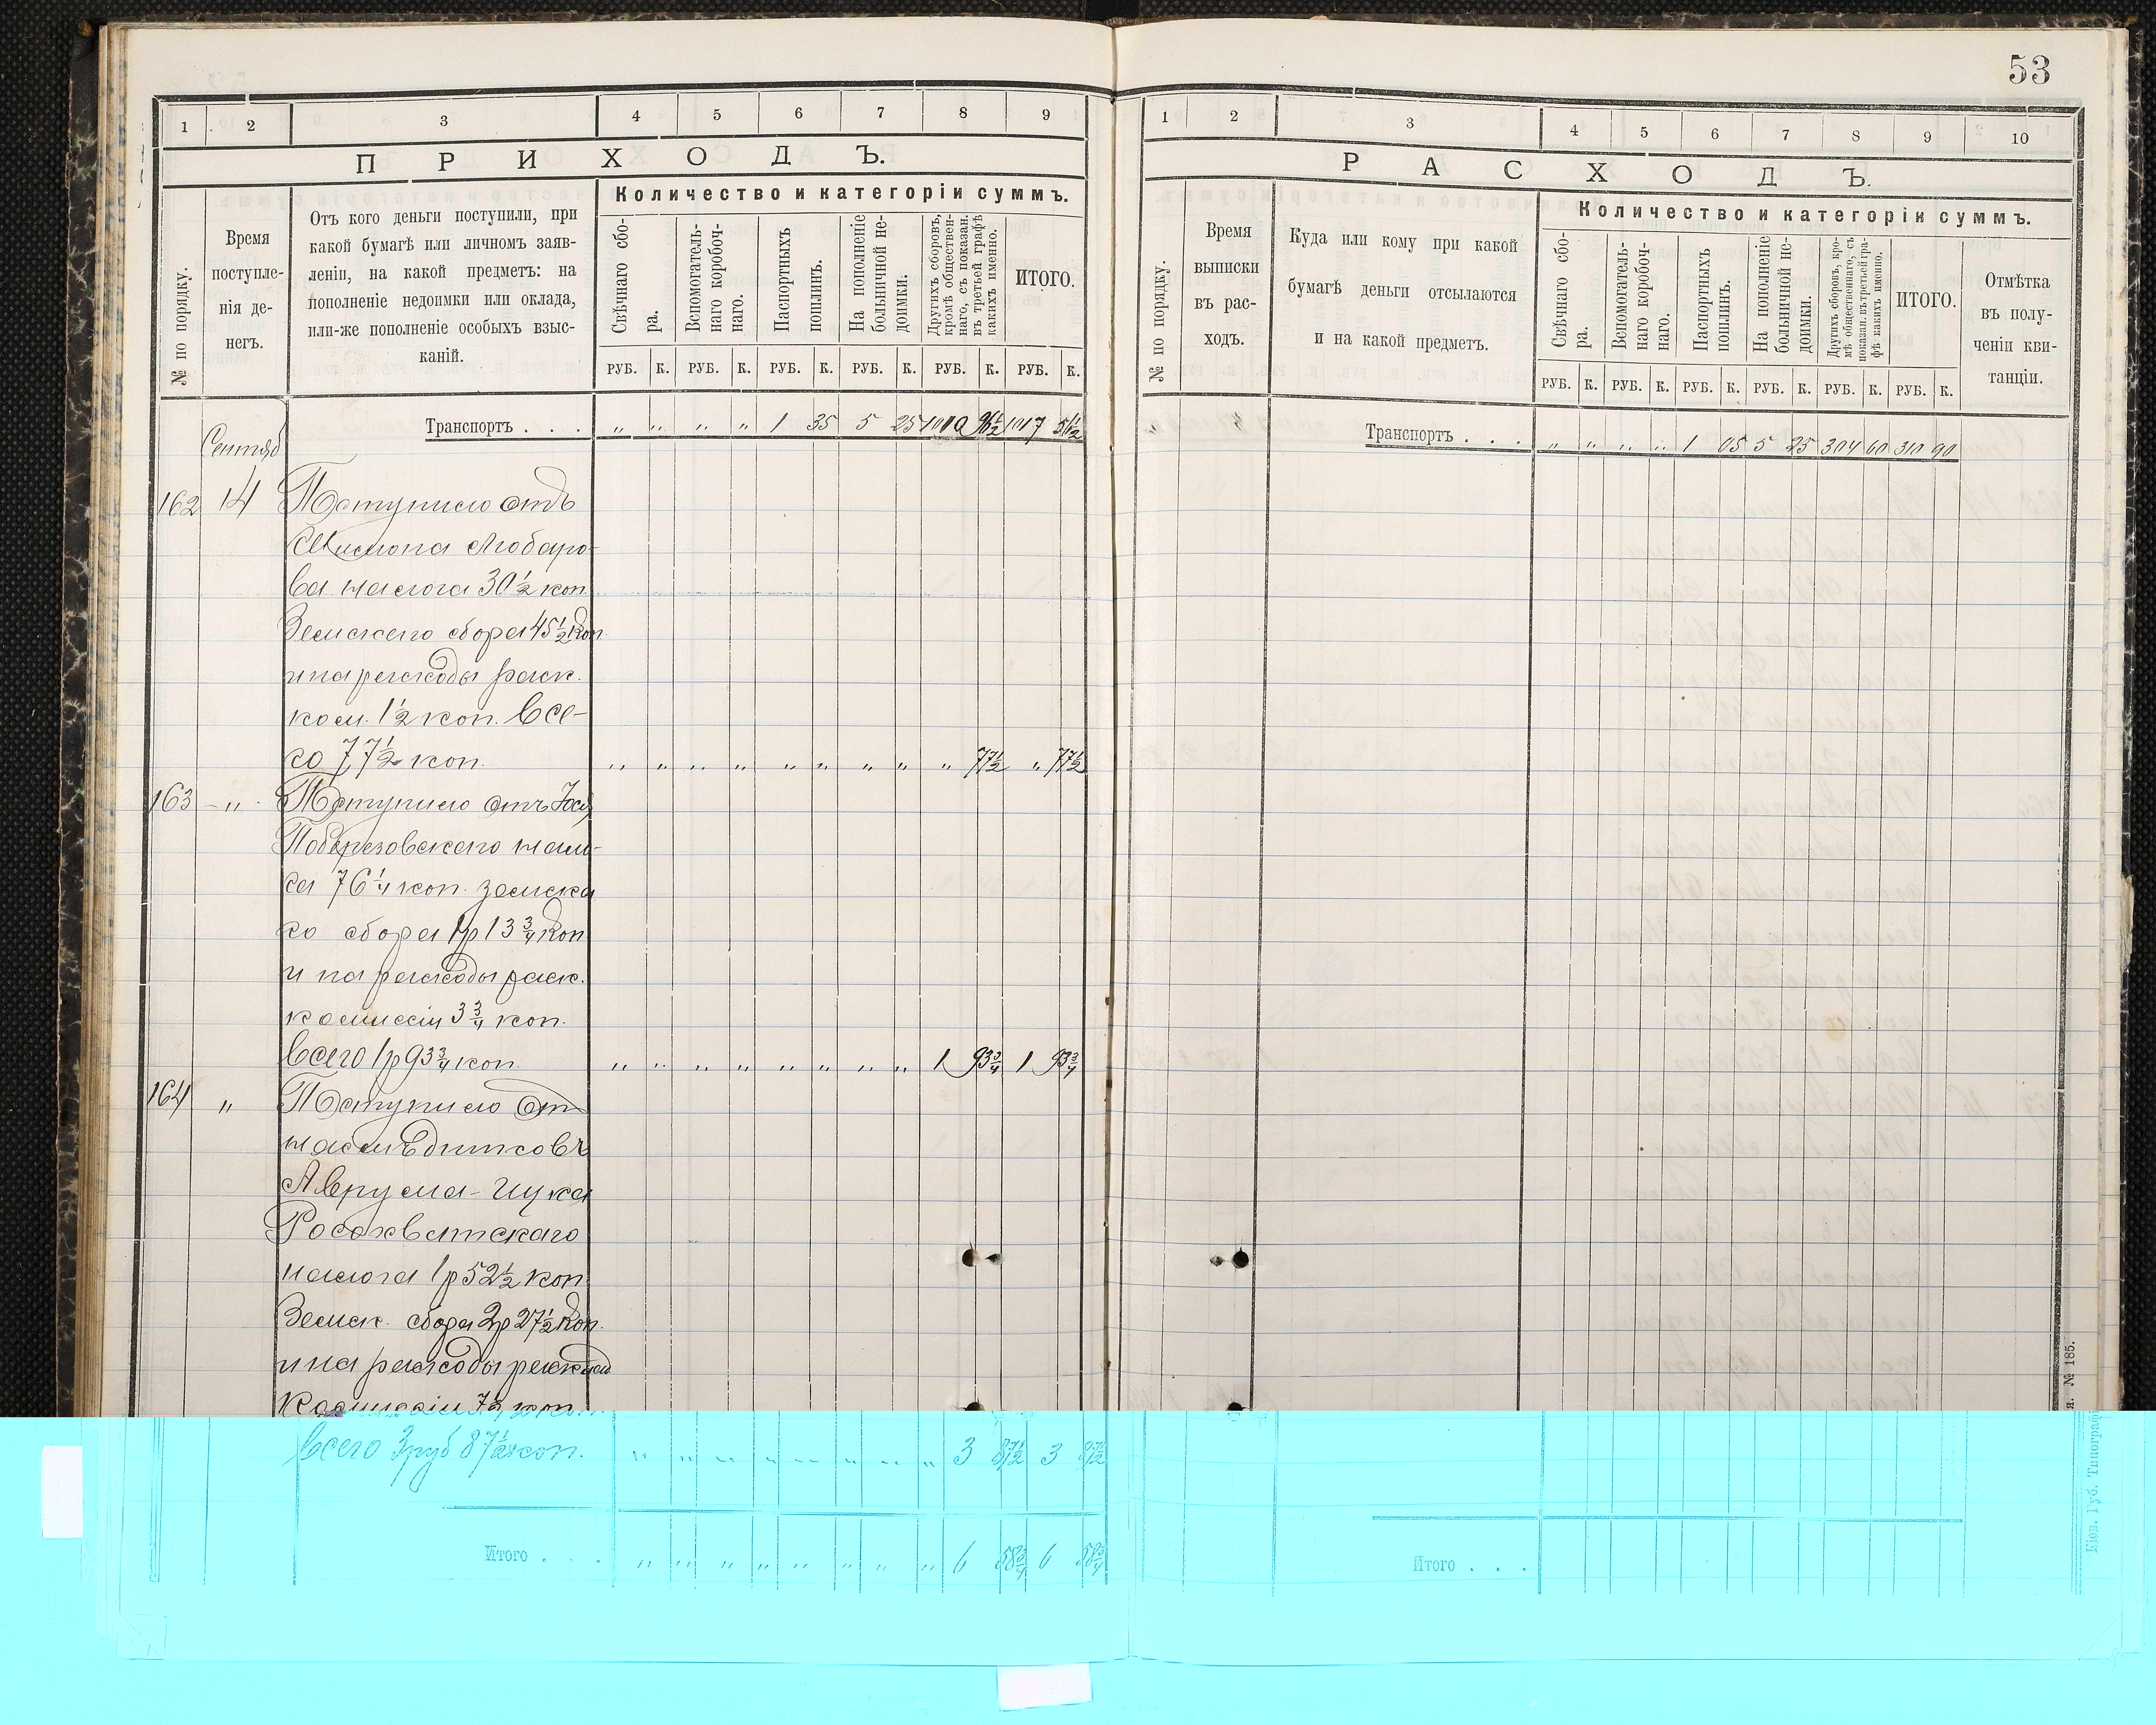 53
1 2 3 4 5 6 7 8 9
ПРИХОДЪ.
Количество и категоріи суммъ.
№ по порядку.
Время поступле-
нія де-
негъ.
Отъ кого деньги поступили, при
какой бумагѣ или личномъ заяв-
леніи, на какой предметъ: на
пополненіе недоимки или оклада,
или-же пополненіе особыхъ взыс-
каній.
Свѣчнаго сбо-
ра.
Вспомогатель-
наго коробоч-
наго.
Паспортныхъ
пошлинъ.
На пополненіе
больничной не-
доимки.
Другихъ сборовъ,
кромѣ обществен-
наго, съ показан.
въ третьей графѣ
какихъ именно.
ИТОГО.
РУБ. К. РУБ. К. РУБ. К. РУБ. К. РУБ. К. РУБ. К.
Транспортъ . . . „ „ „ „ 1 35 5 25 1010 96½ 1017 56½
Сентяб
162 14 Поступило отъ
Любаро-
ва налога 30½ коп
Земскаго сбора 45½ коп.
и на расходы раск.
ком. 1½ коп. Все-
го 77½ коп. „ „ „ „ „ „ „ „ „ 77½ „ 77½
163 „ Поступило отъ Іос
Поберезовскаго нало-
га 76¼ коп. земска
го сбора 1р 13¾ коп
и на расходы раск.
коммиссіи 3¾ коп.
всего 1р 93¾ коп. „ „ „ „ „ „ „ „ 1 93¾ 1 93¾
164 „ Поступило От
наслѣдниковъ
Аврума-Ицка
Росохватскаго
налога 1р 52½ коп.
Земск. сбора 2р 27½ коп.
и на расходы расклад
Коммиссіи 7½ коп.
всего 3 руб 87½ коп. „ „ „ „ „ „ „ „ 3 87½ 3 87½
Итого . . . „ „ „ „ „ „ „ „ 6 58¾ 6 58¾
1 2 3 4 5 6 7 8 9 10
РАСХОДЪ.
Количество и категоріи суммъ.
№ по порядку.
Время
выписки
въ рас-
ходъ.
Куда или кому при какой
бумагѣ деньги отсылаются
и на какой предметъ.
Свѣчнаго сбо-
ра.
Вспомогатель-
наго коробоч-
наго.
Паспортныхъ
пошлинъ.
На пополненіе
больничной не-
доимки.
Другихъ сборовъ, кро-
мѣ общественнаго, съ
показан. въ третьей гра-
фѣ какихъ именно.
ИТОГО.
Отмѣтка
въ полу-
ченіи кви-
танціи.
РУБ. К. РУБ. К. РУБ. К. РУБ. К. РУБ. К. РУБ. К.
Транспортъ . . . „ „ „ „ 1 05 5 25 304 60 310 90
Итого . . .
Кіев. Губ. Типографі
я. № 185.